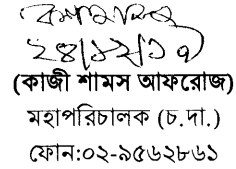 ২৪/১২/১৭
(কাজী শামস আফরোজ)
মহাপরিচালক (চ.দা.)
ফোন:০২-৯৫৬২৮৬১